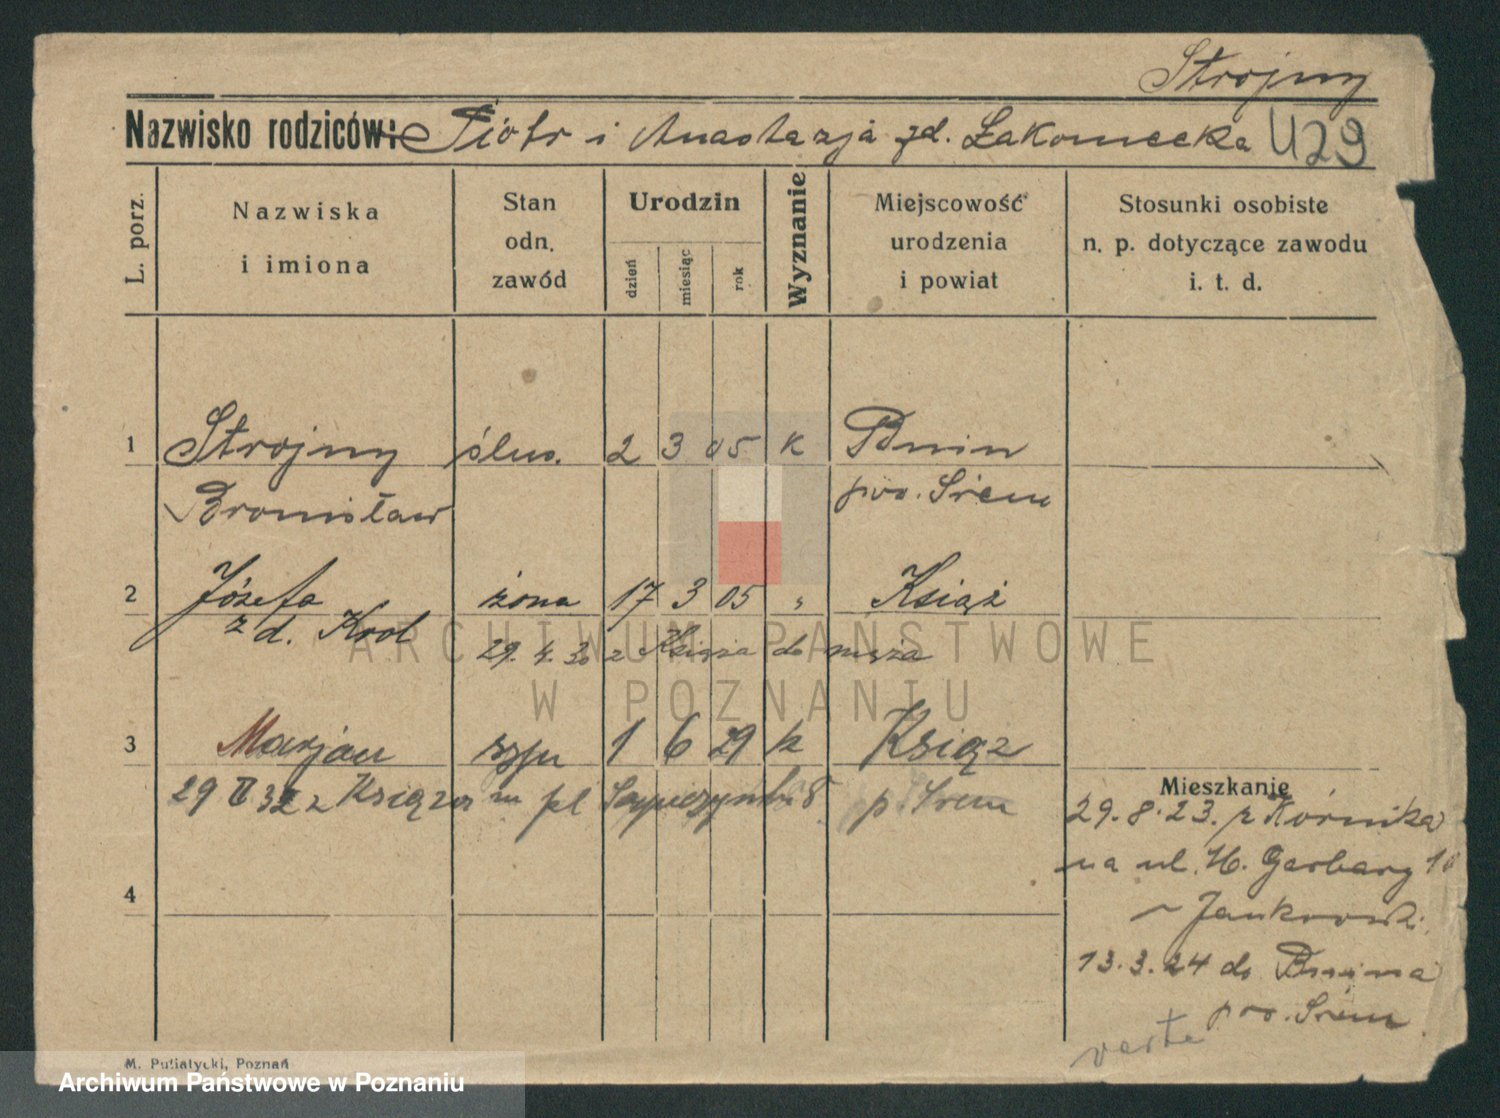 Strojny
Nazwisko rodziców: Piotr i Anastazja zd. Łakomecka U29
L. porz.
Nazwiska
i imiona
Stan
odn.
zawód
Urodzin
dzień
miesiąc
rok
Wyznanie
Miejscowość
urodzenia
i powiat
Stosunki osobiste
n. p. dotyczące zawodu
i. t. d.
1 Strojny ślus. 2 3 05 k Bnin
Bronisław pow. Śrem
2 Józefa żona 17 3 05 " Książ
zd. Król 29. 4. 30 z Książa do męża
3 Marjan syn 1 6 29 k Książ
29 II 32 z Książa pl p. Śrem
Mieszkanie
29.8.23. z Kórnika
na ul. W. Garbary
Jankowski
13.3.24 do Bnina
pow. Śrem
verte
4
M. Putiatycki, Poznań
ARCHIWUM PAŃSTWOWE
W POZNANIU
Archiwum Państwowe w Poznaniu